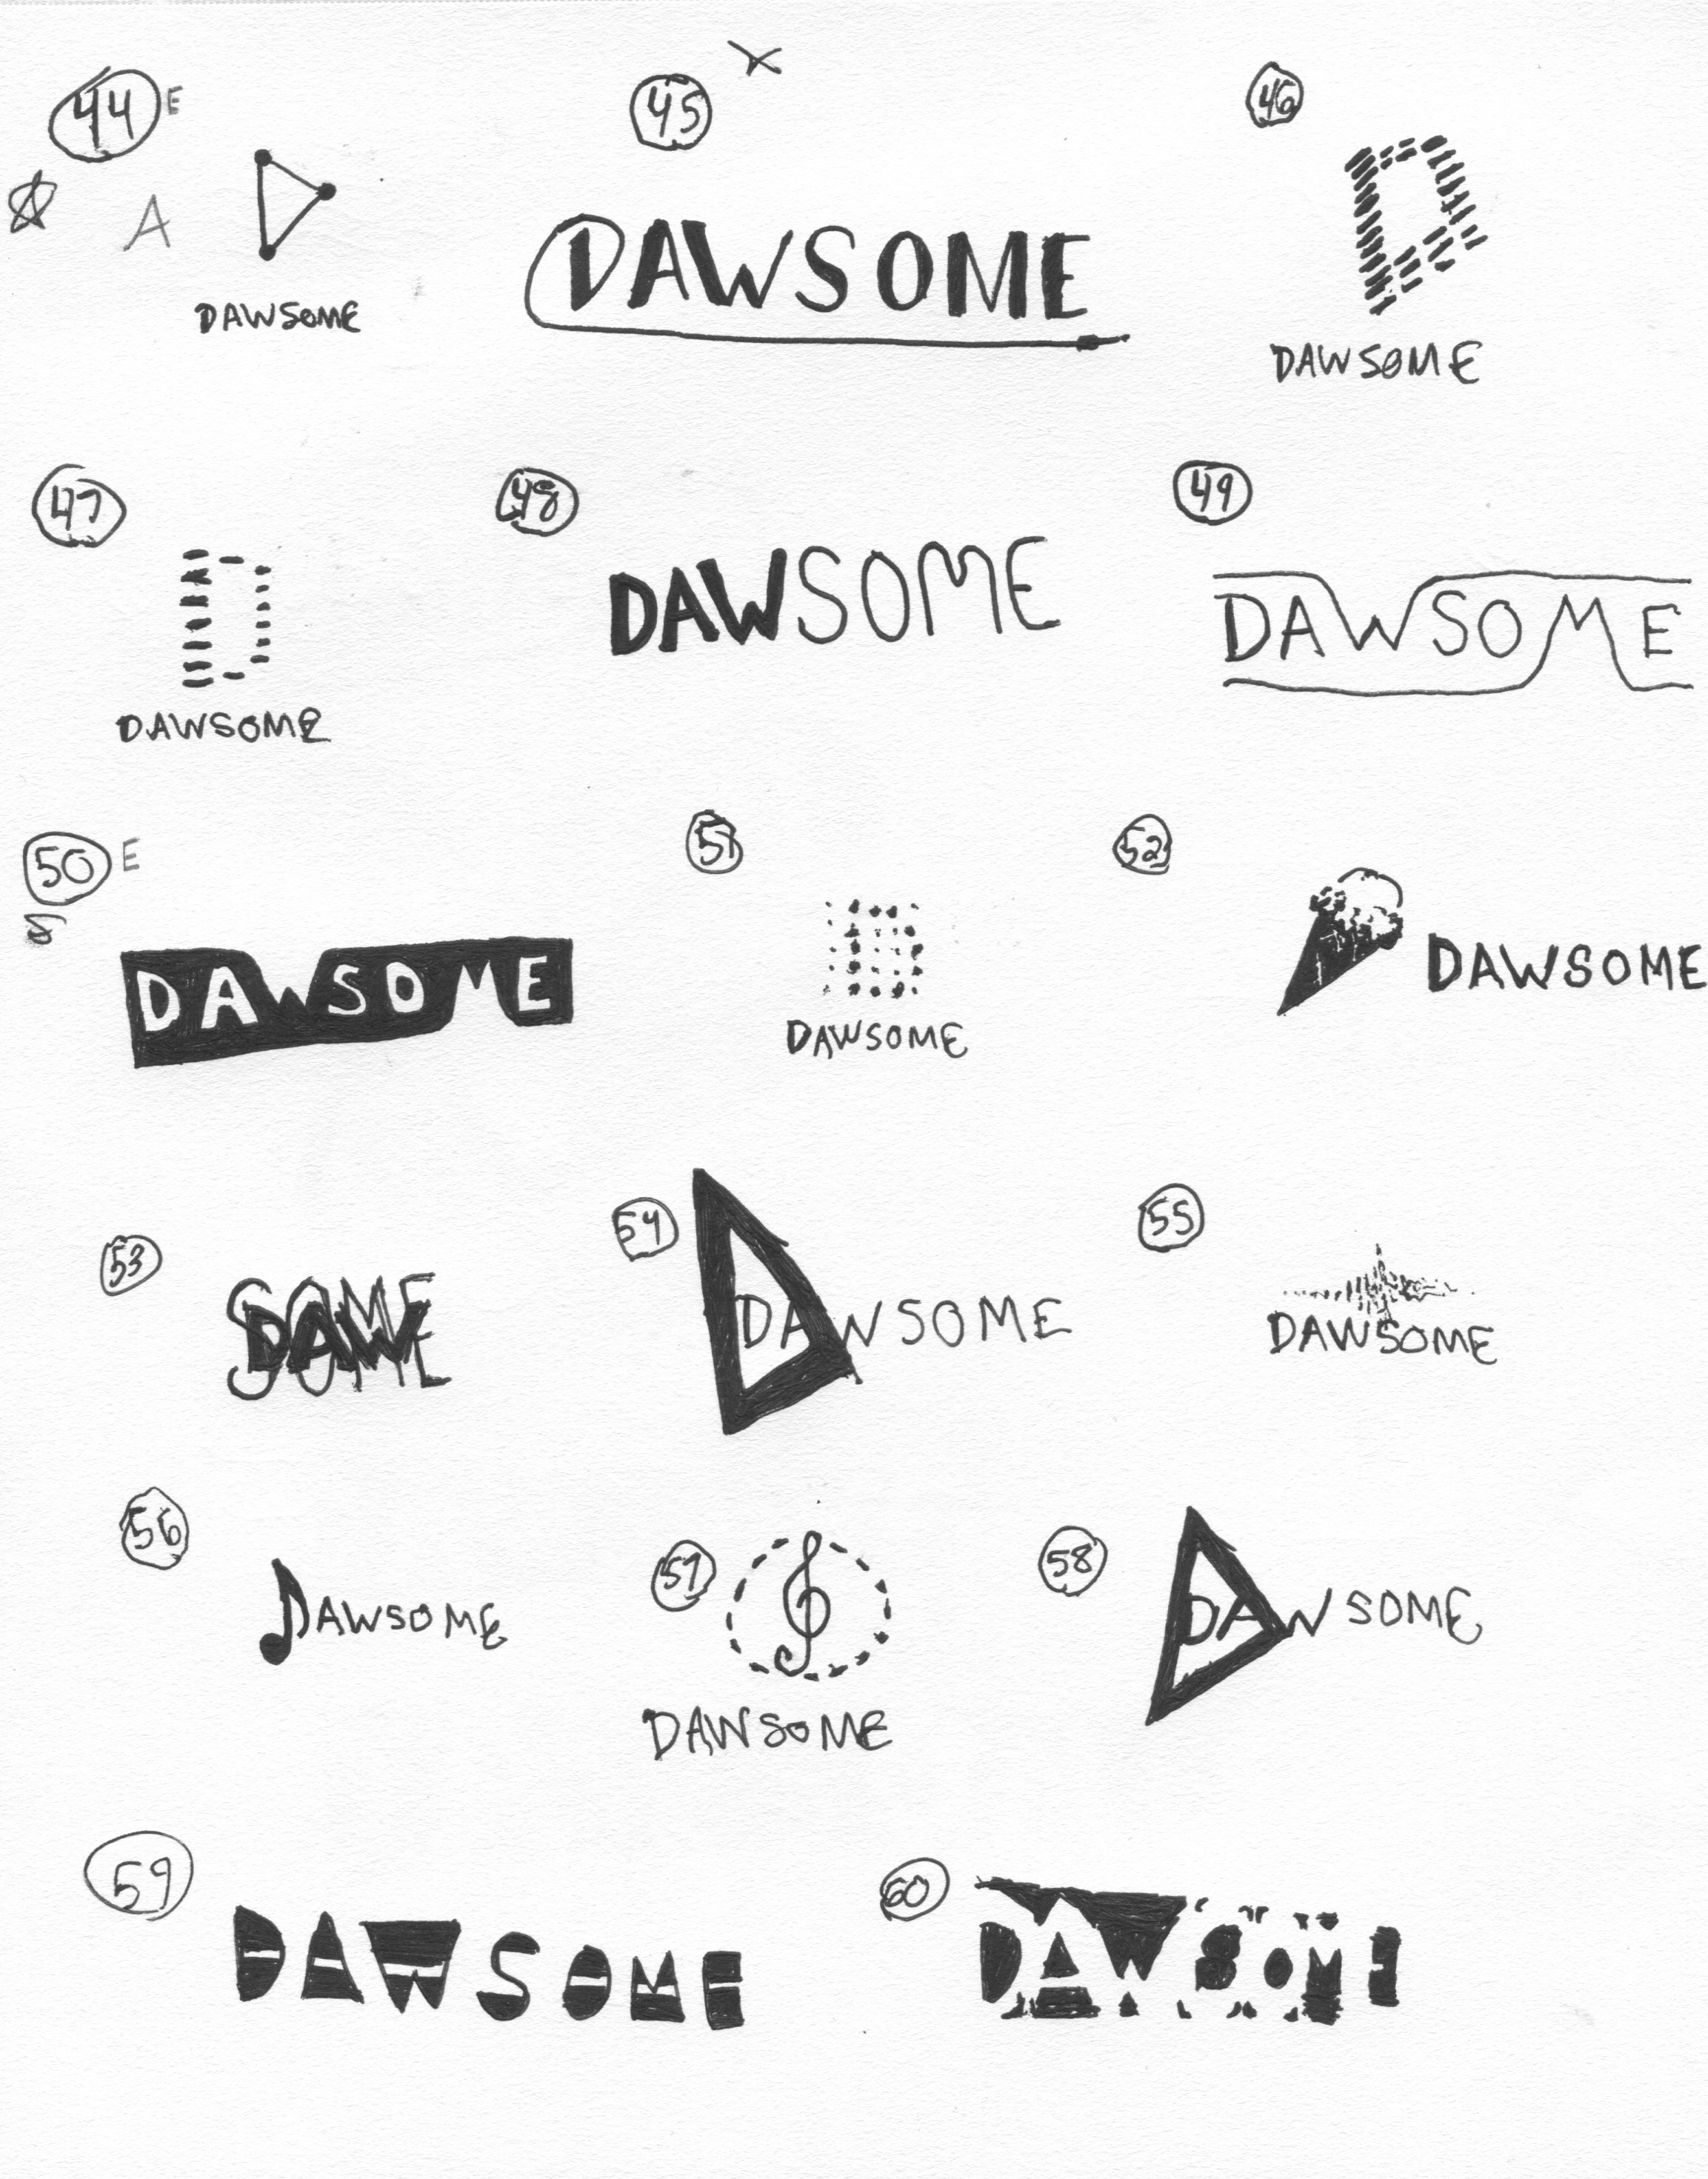 44 E
A
DAWSOME
45 X
DAWSOME
46
DAWSOME
47
DAWSOME
48
DAWSOME
49
DAWSOME
50 E
DAWSOME
51
DAWSOME
52
DAWSOME
53
SOME
DAW
SOME
54
DAWSOME
55
DAWSOME
56
DAWSOME
57
DAWSOME
58
DAWSOME
59
DAWSOME
60
DAWSOME